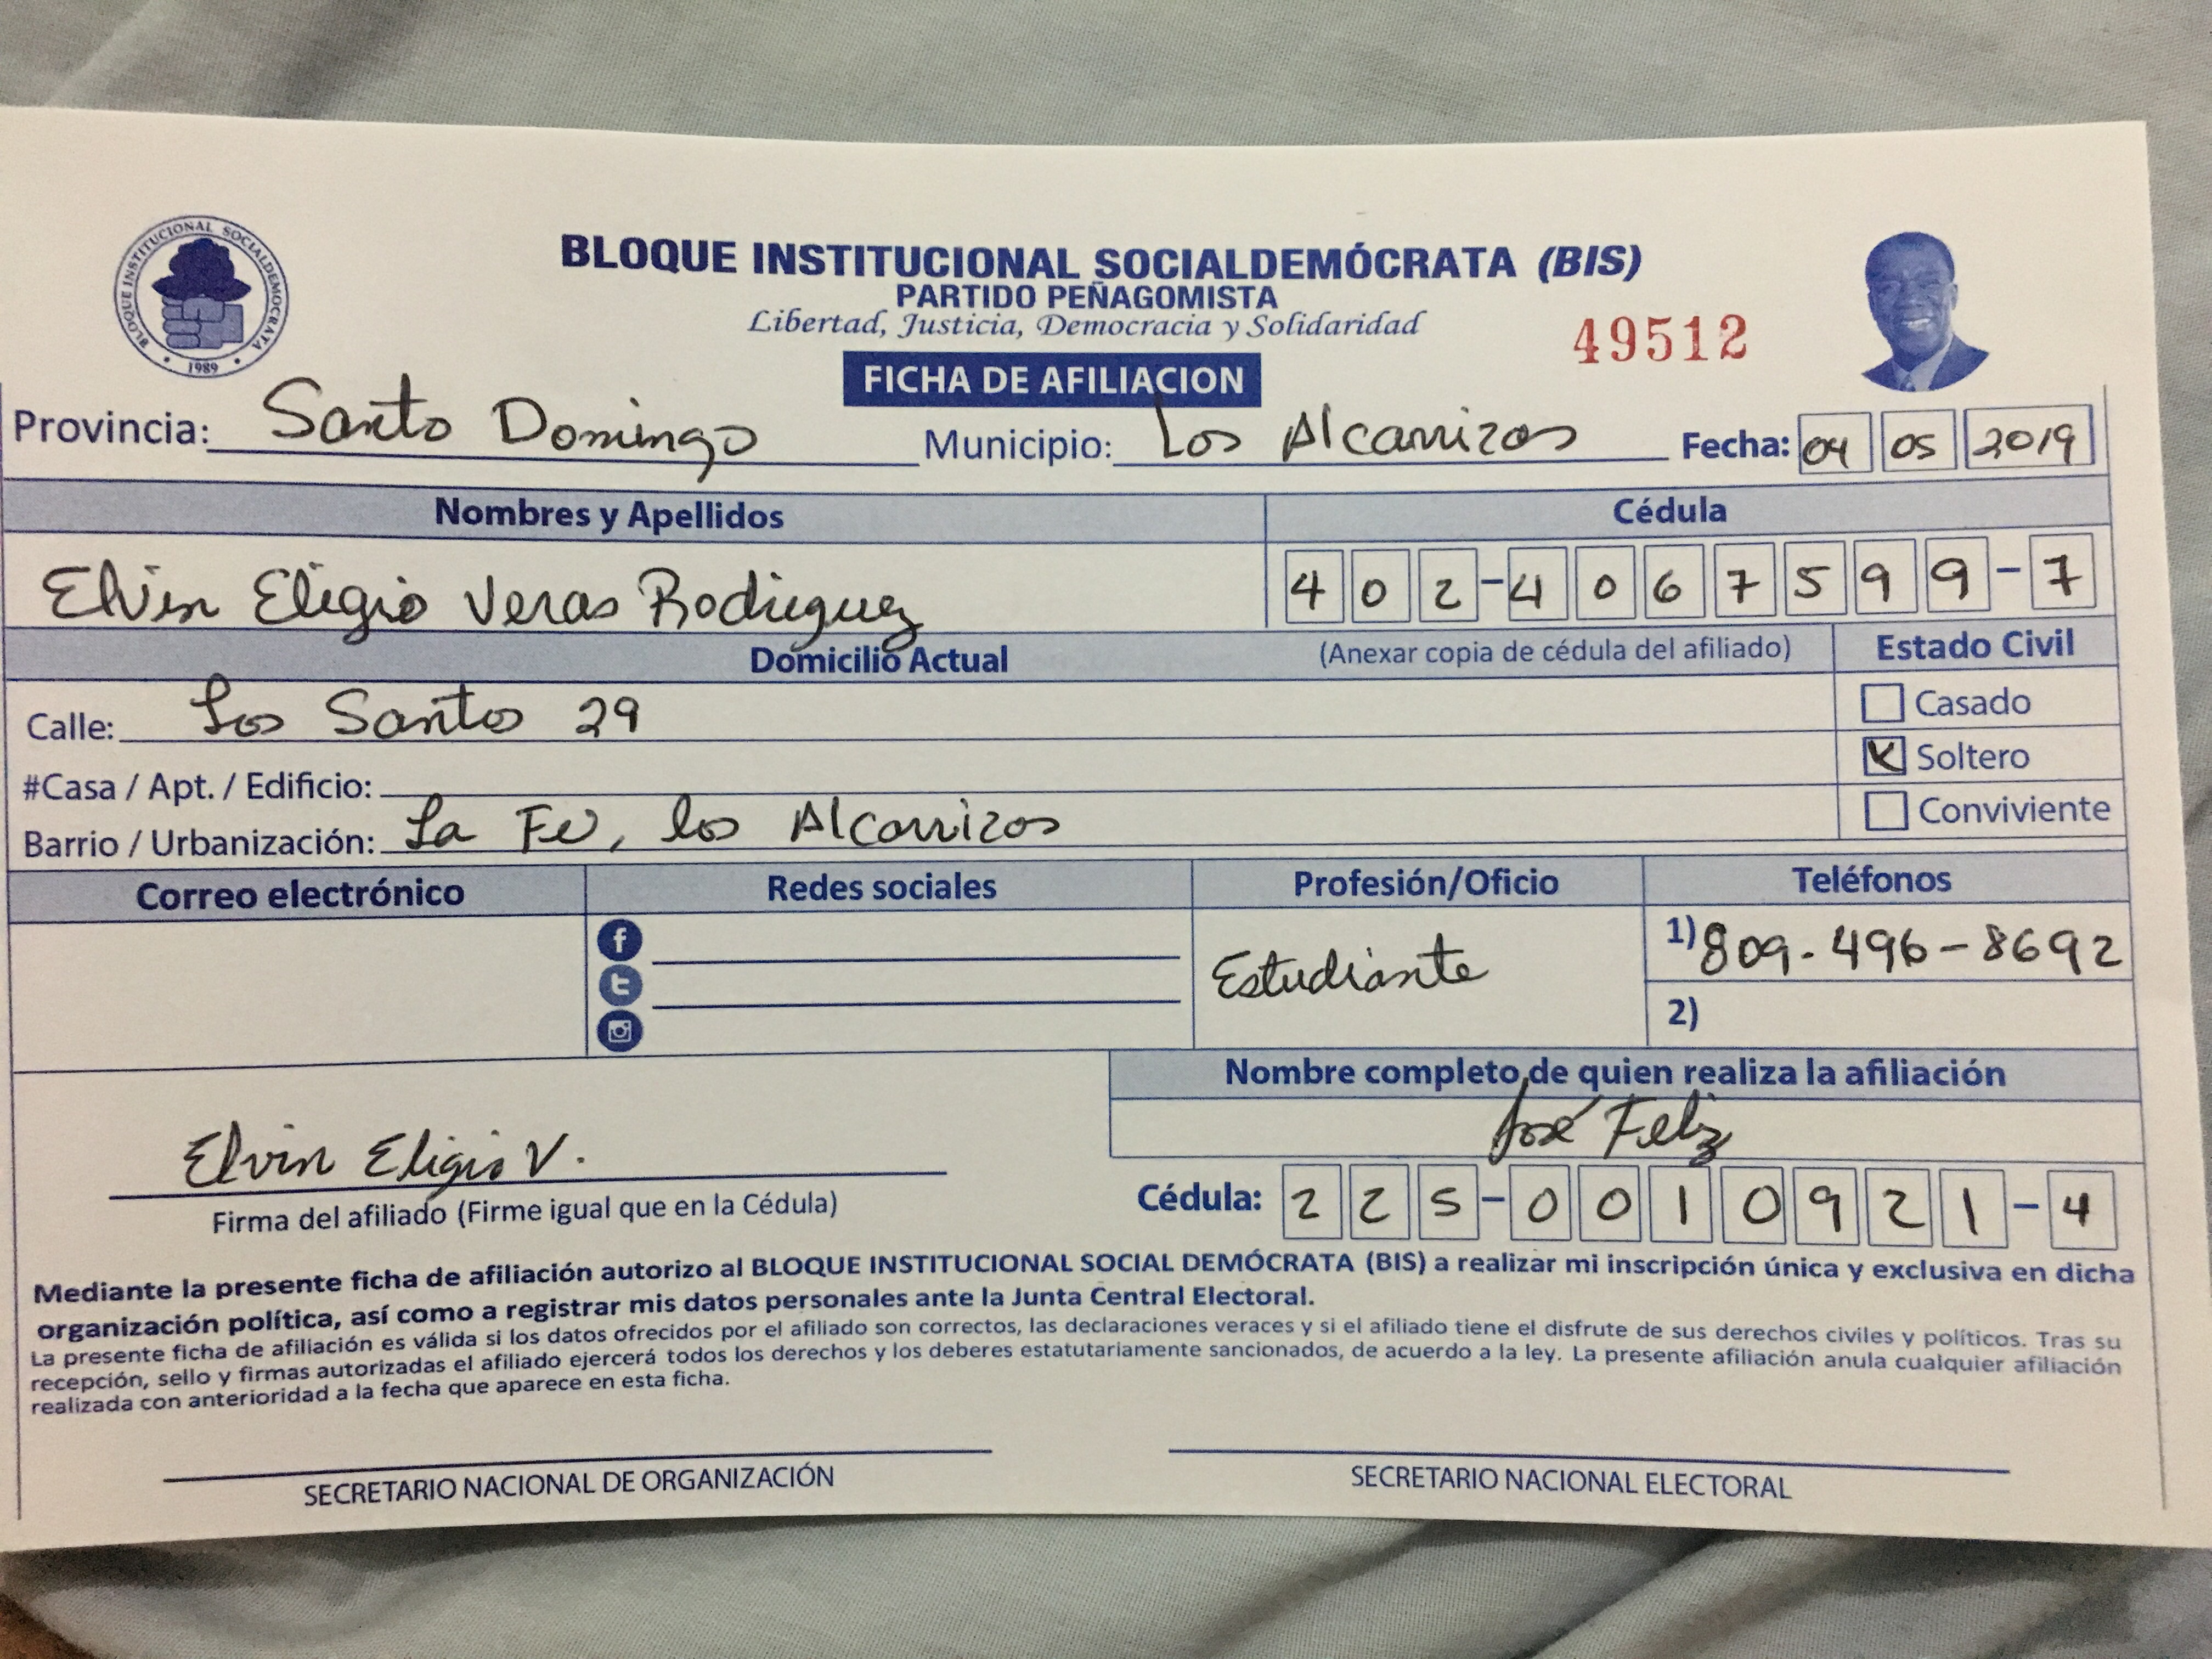 BLOQUE INSTITUCIONAL SOCIALDEMOCRATA
1989
BLOQUE INSTITUCIONAL SOCIALDEMÓCRATA (BIS)
PARTIDO PEÑAGOMISTA
Libertad, Justicia, Democracia y Solidaridad
49512
FICHA DE AFILIACION
Provincia: Santo Domingo Municipio: Los Alcarrizos Fecha: 04 05 2019
Nombres y Apellidos Cédula
Elvin Eligio Veras Rodriguez 402-4067599-7
Domicilio Actual (Anexar copia de cédula del afiliado) Estado Civil
Calle: Los Santos 29 Casado
#Casa / Apt. / Edificio: Soltero
Barrio / Urbanización: La Fe, los Alcarrizos Conviviente
Correo electrónico Redes sociales Profesión/Oficio Teléfonos
Estudiante 1) 809-496-8692
2)
Nombre completo de quien realiza la afiliación
José Feliz
Elvin Eligio V.
Firma del afiliado (Firme igual que en la Cédula) Cédula: 225-0010921-4
Mediante la presente ficha de afiliación autorizo al BLOQUE INSTITUCIONAL SOCIAL DEMÓCRATA (BIS) a realizar mi inscripción única y exclusiva en dicha
organización política, así como a registrar mis datos personales ante la Junta Central Electoral.
La presente ficha de afiliación es válida si los datos ofrecidos por el afiliado son correctos, las declaraciones veraces y si el afiliado tiene el disfrute de sus derechos civiles y políticos. Tras su
recepción, sello y firmas autorizadas el afiliado ejercerá todos los derechos y los deberes estatutariamente sancionados, de acuerdo a la ley. La presente afiliación anula cualquier afiliación
realizada con anterioridad a la fecha que aparece en esta ficha.
SECRETARIO NACIONAL DE ORGANIZACIÓN SECRETARIO NACIONAL ELECTORAL